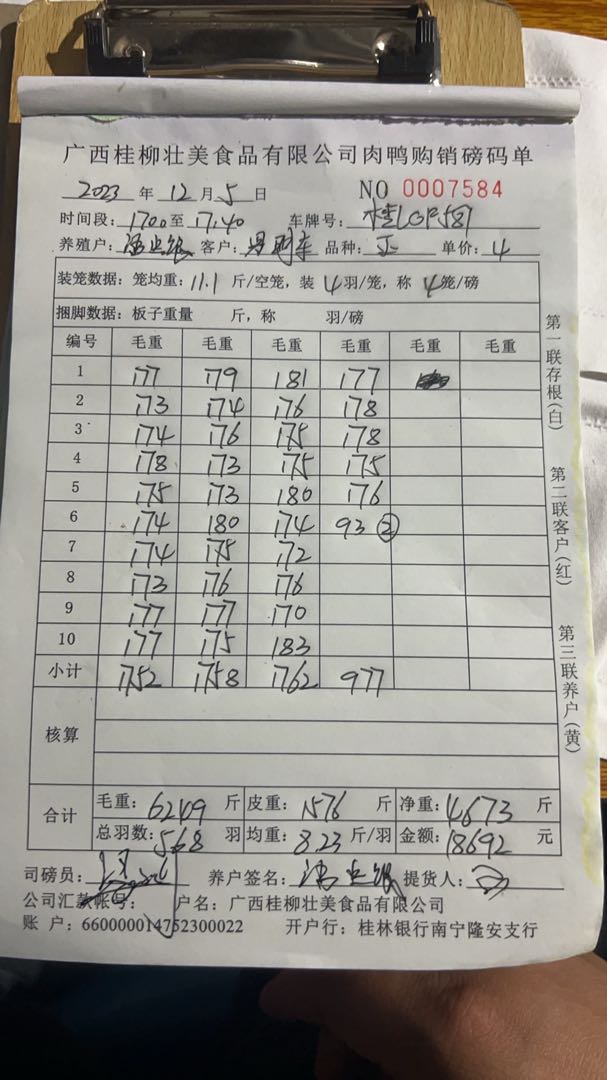 广西桂柳壮美食品有限公司肉鸭购销磅码单
2023 年 12 月 5 日 NO 0007584
时间段: 1700 至 17.40 车牌号: 桂LGP587
养殖户: 客户: 品种: 正 单价: 4
装笼数据: 笼均重: 11.1 斤/空笼, 装 4 羽/笼, 称 4 笼/磅
捆脚数据: 板子重量 斤, 称 羽/磅
编号 毛重 毛重 毛重 毛重 毛重 毛重
1 177 179 181 177
2 173 174 176 178
3 174 176 175 178
4 178 173 175 175
5 175 173 180 176
6 174 180 174 93 ②
7 174 175 172
8 173 176 176
9 177 177 170
10 177 175 183
小计 1752 1758 1762 977
核算
合计 毛重: 6249 斤 皮重: 1576 斤 净重: 4673 斤
总羽数: 568 羽 均重: 8.23 斤/羽 金额: 18692 元
司磅员: 养户签名: 提货人:
公司汇款帐号: 户名: 广西桂柳壮美食品有限公司
账 户: 660000014752300022 开户行: 桂林银行南宁隆安支行
第一联存根(白)
第二联客户(红)
第三联养户(黄)